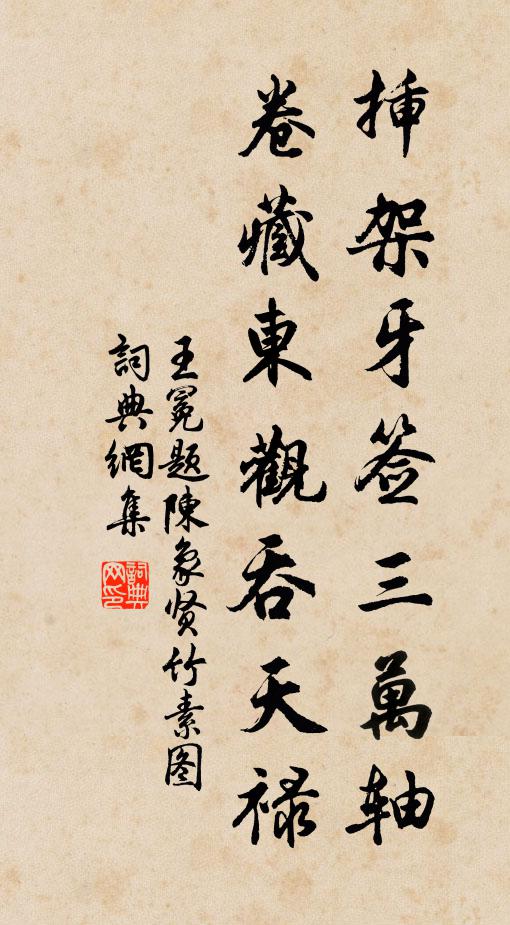 插架牙签三萬軸
卷藏東觀吞天禄
王冕题陳象贤竹素图
詞典網集
詞典网印